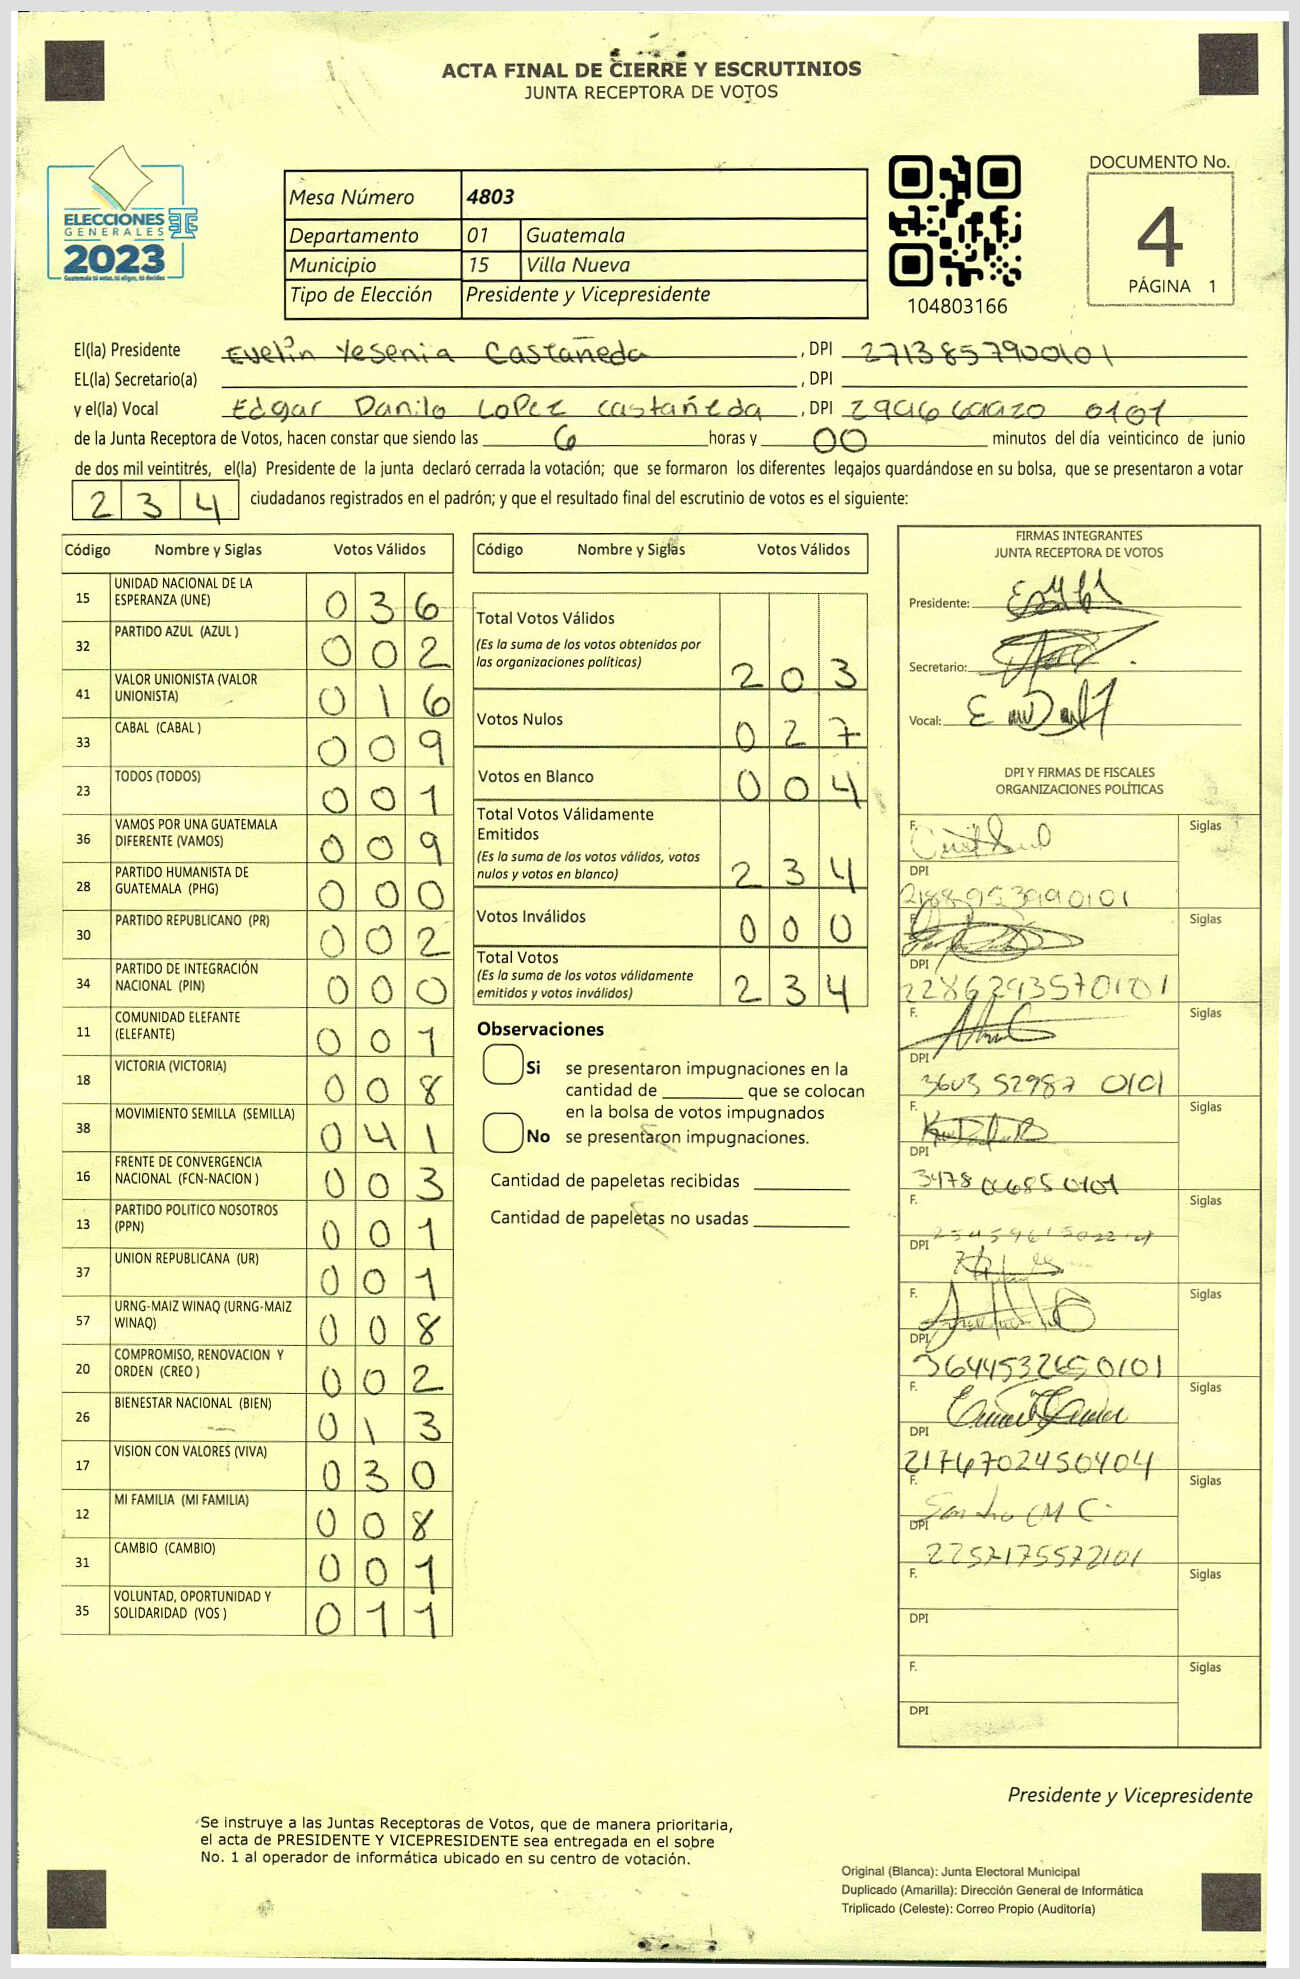 ACTA FINAL DE CIERRE Y ESCRUTINIOS
JUNTA RECEPTORA DE VOTOS
ELECCIONES
GENERALES
2023
Guatemala tú votas, tú eliges, tú decides
Mesa Número 4803
Departamento 01 Guatemala
Municipio 15 Villa Nueva
Tipo de Elección Presidente y Vicepresidente
104803166
DOCUMENTO No.
4
PÁGINA 1
El(la) Presidente Evelin Yesenia Castañeda, DPI 2713857900101
EL(la) Secretario(a) , DPI
y el(la) Vocal Edgar Danilo LoPez castañeda, DPI 0101
de la Junta Receptora de Votos, hacen constar que siendo las 6 horas y 00 minutos del día veinticinco de junio
de dos mil veintitrés, el(la) Presidente de la junta declaró cerrada la votación; que se formaron los diferentes legajos guardándose en su bolsa, que se presentaron a votar
2 3 4 ciudadanos registrados en el padrón; y que el resultado final del escrutinio de votos es el siguiente:
Código Nombre y Siglas Votos Válidos
15 UNIDAD NACIONAL DE LA ESPERANZA (UNE) 0 3 6
32 PARTIDO AZUL (AZUL ) 0 0 2
41 VALOR UNIONISTA (VALOR UNIONISTA) 0 1 6
33 CABAL (CABAL ) 0 0 9
23 TODOS (TODOS) 0 0 1
36 VAMOS POR UNA GUATEMALA DIFERENTE (VAMOS) 0 0 9
28 PARTIDO HUMANISTA DE GUATEMALA (PHG) 0 0 0
30 PARTIDO REPUBLICANO (PR) 0 0 2
34 PARTIDO DE INTEGRACIÓN NACIONAL (PIN) 0 0 0
11 COMUNIDAD ELEFANTE (ELEFANTE) 0 0 1
18 VICTORIA (VICTORIA) 0 0 8
38 MOVIMIENTO SEMILLA (SEMILLA) 0 4 1
16 FRENTE DE CONVERGENCIA NACIONAL (FCN-NACION ) 0 0 3
13 PARTIDO POLITICO NOSOTROS (PPN) 0 0 1
37 UNION REPUBLICANA (UR) 0 0 1
57 URNG-MAIZ WINAQ (URNG-MAIZ WINAQ) 0 0 8
20 COMPROMISO, RENOVACION Y ORDEN (CREO ) 0 0 2
26 BIENESTAR NACIONAL (BIEN) 0 1 3
17 VISION CON VALORES (VIVA) 0 3 0
12 MI FAMILIA (MI FAMILIA) 0 0 8
31 CAMBIO (CAMBIO) 0 0 1
35 VOLUNTAD, OPORTUNIDAD Y SOLIDARIDAD (VOS ) 0 1 1
Código Nombre y Siglas Votos Válidos
Total Votos Válidos
(Es la suma de los votos obtenidos por
las organizaciones políticas) 2 0 3
Votos Nulos 0 2 7
Votos en Blanco 0 0 4
Total Votos Válidamente
Emitidos
(Es la suma de los votos válidos, votos
nulos y votos en blanco) 2 3 4
Votos Inválidos 0 0 0
Total Votos
(Es la suma de los votos válidamente
emitidos y votos inválidos) 2 3 4
Observaciones
Si se presentaron impugnaciones en la
cantidad de que se colocan
en la bolsa de votos impugnados
No se presentaron impugnaciones.
Cantidad de papeletas recibidas
Cantidad de papeletas no usadas
FIRMAS INTEGRANTES
JUNTA RECEPTORA DE VOTOS
Presidente:
Secretario:
Vocal:
DPI Y FIRMAS DE FISCALES
ORGANIZACIONES POLÍTICAS
F. Siglas
DPI
F. Siglas
DPI
2286293570101
F. Siglas
DPI
3603 52987 0101
F. Siglas
DPI
F. Siglas
DPI
F. Siglas
DPI
3644532650101
F. Siglas
DPI
2176702450404
F. Siglas
DPI
2257175572101
F. Siglas
DPI
F. Siglas
DPI
Presidente y Vicepresidente
Se instruye a las Juntas Receptoras de Votos, que de manera prioritaria,
el acta de PRESIDENTE Y VICEPRESIDENTE sea entregada en el sobre
No. 1 al operador de informática ubicado en su centro de votación.
Original (Blanca): Junta Electoral Municipal
Duplicado (Amarilla): Dirección General de Informática
Triplicado (Celeste): Correo Propio (Auditoría)